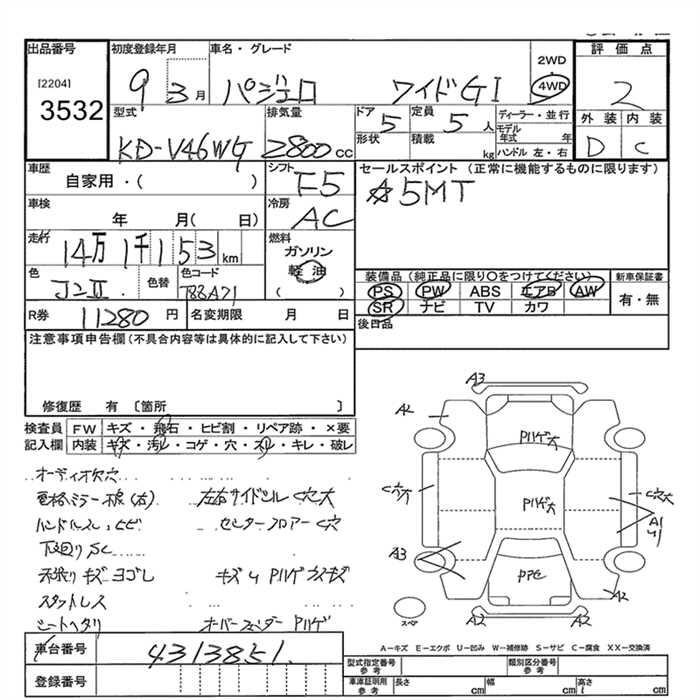 出品番号
[2204]
3532
初度登録年月
9 3月
車名・グレード
パジェロ ワイドGI
2WD
4WD
評価点
2
外装 内装
D C
型式
KD-V46WG
排気量
2800cc
ドア
5
定員
5人
形状
積載
kg
ディーラー・並行
モデル年式 年
ハンドル 左・右
車歴
自家用・( )
シフト
F5
セールスポイント (正常に機能するものに限ります)
☆5MT
車検
年 月( 日)
冷房
AC
走行
14万1千153km
燃料
ガソリン
軽油
( )
色
コンⅡ
色替
色コード
T88A71
装備品 (純正品に限り○をつけてください)
PS PW ABS エアB AW
SR ナビ TV カワ
新車保証書
有・無
R券
11280円
名変期限 月 日
後日品
注意事項申告欄 (不具合内容等は具体的に記入して下さい)
修復歴 有 〔箇所 〕
検査員記入欄
FW キズ・飛石・ヒビ割・リペア跡・×要
内装 キズ・汚レ・コゲ・穴・スレ・キレ・破レ
オーディオ欠穴
電格ミラー不良(右) 左右サイドシルC穴大
ハンドルスレ、ヒビ センターフロアーC穴
下廻りSC
天張りキズヨゴレ キズUPハゲカスキズ
スタットレス
シートヘタリ オーバーフェンダーPハゲ
A3
A2
Pハゲ大
C穴大
Pハゲ大
C穴大
A1
U1
A3
PアセA2
スペア
A2 A2
A－キズ E－エクボ U－凹み W－補修跡 S－サビ C－腐食 XX－交換済
車台番号
4313851
登録番号
型式指定番号 参考
類別区分番号 参考
車庫証明用 参考
長さ cm 幅 cm 高さ cm